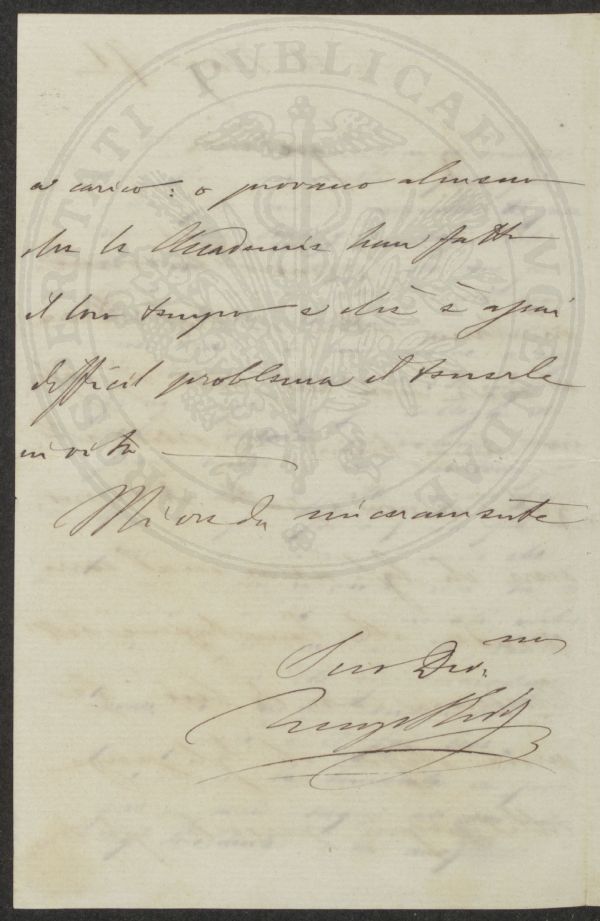 PROSPERITATI PVBLICAE AVGENDAE
a carico: o provano almeno
che le Accademie han fatto
il loro tempo e che è assai
difficil problema il tenerle
in vita
Mi creda sinceramente
Suo Dev.mo